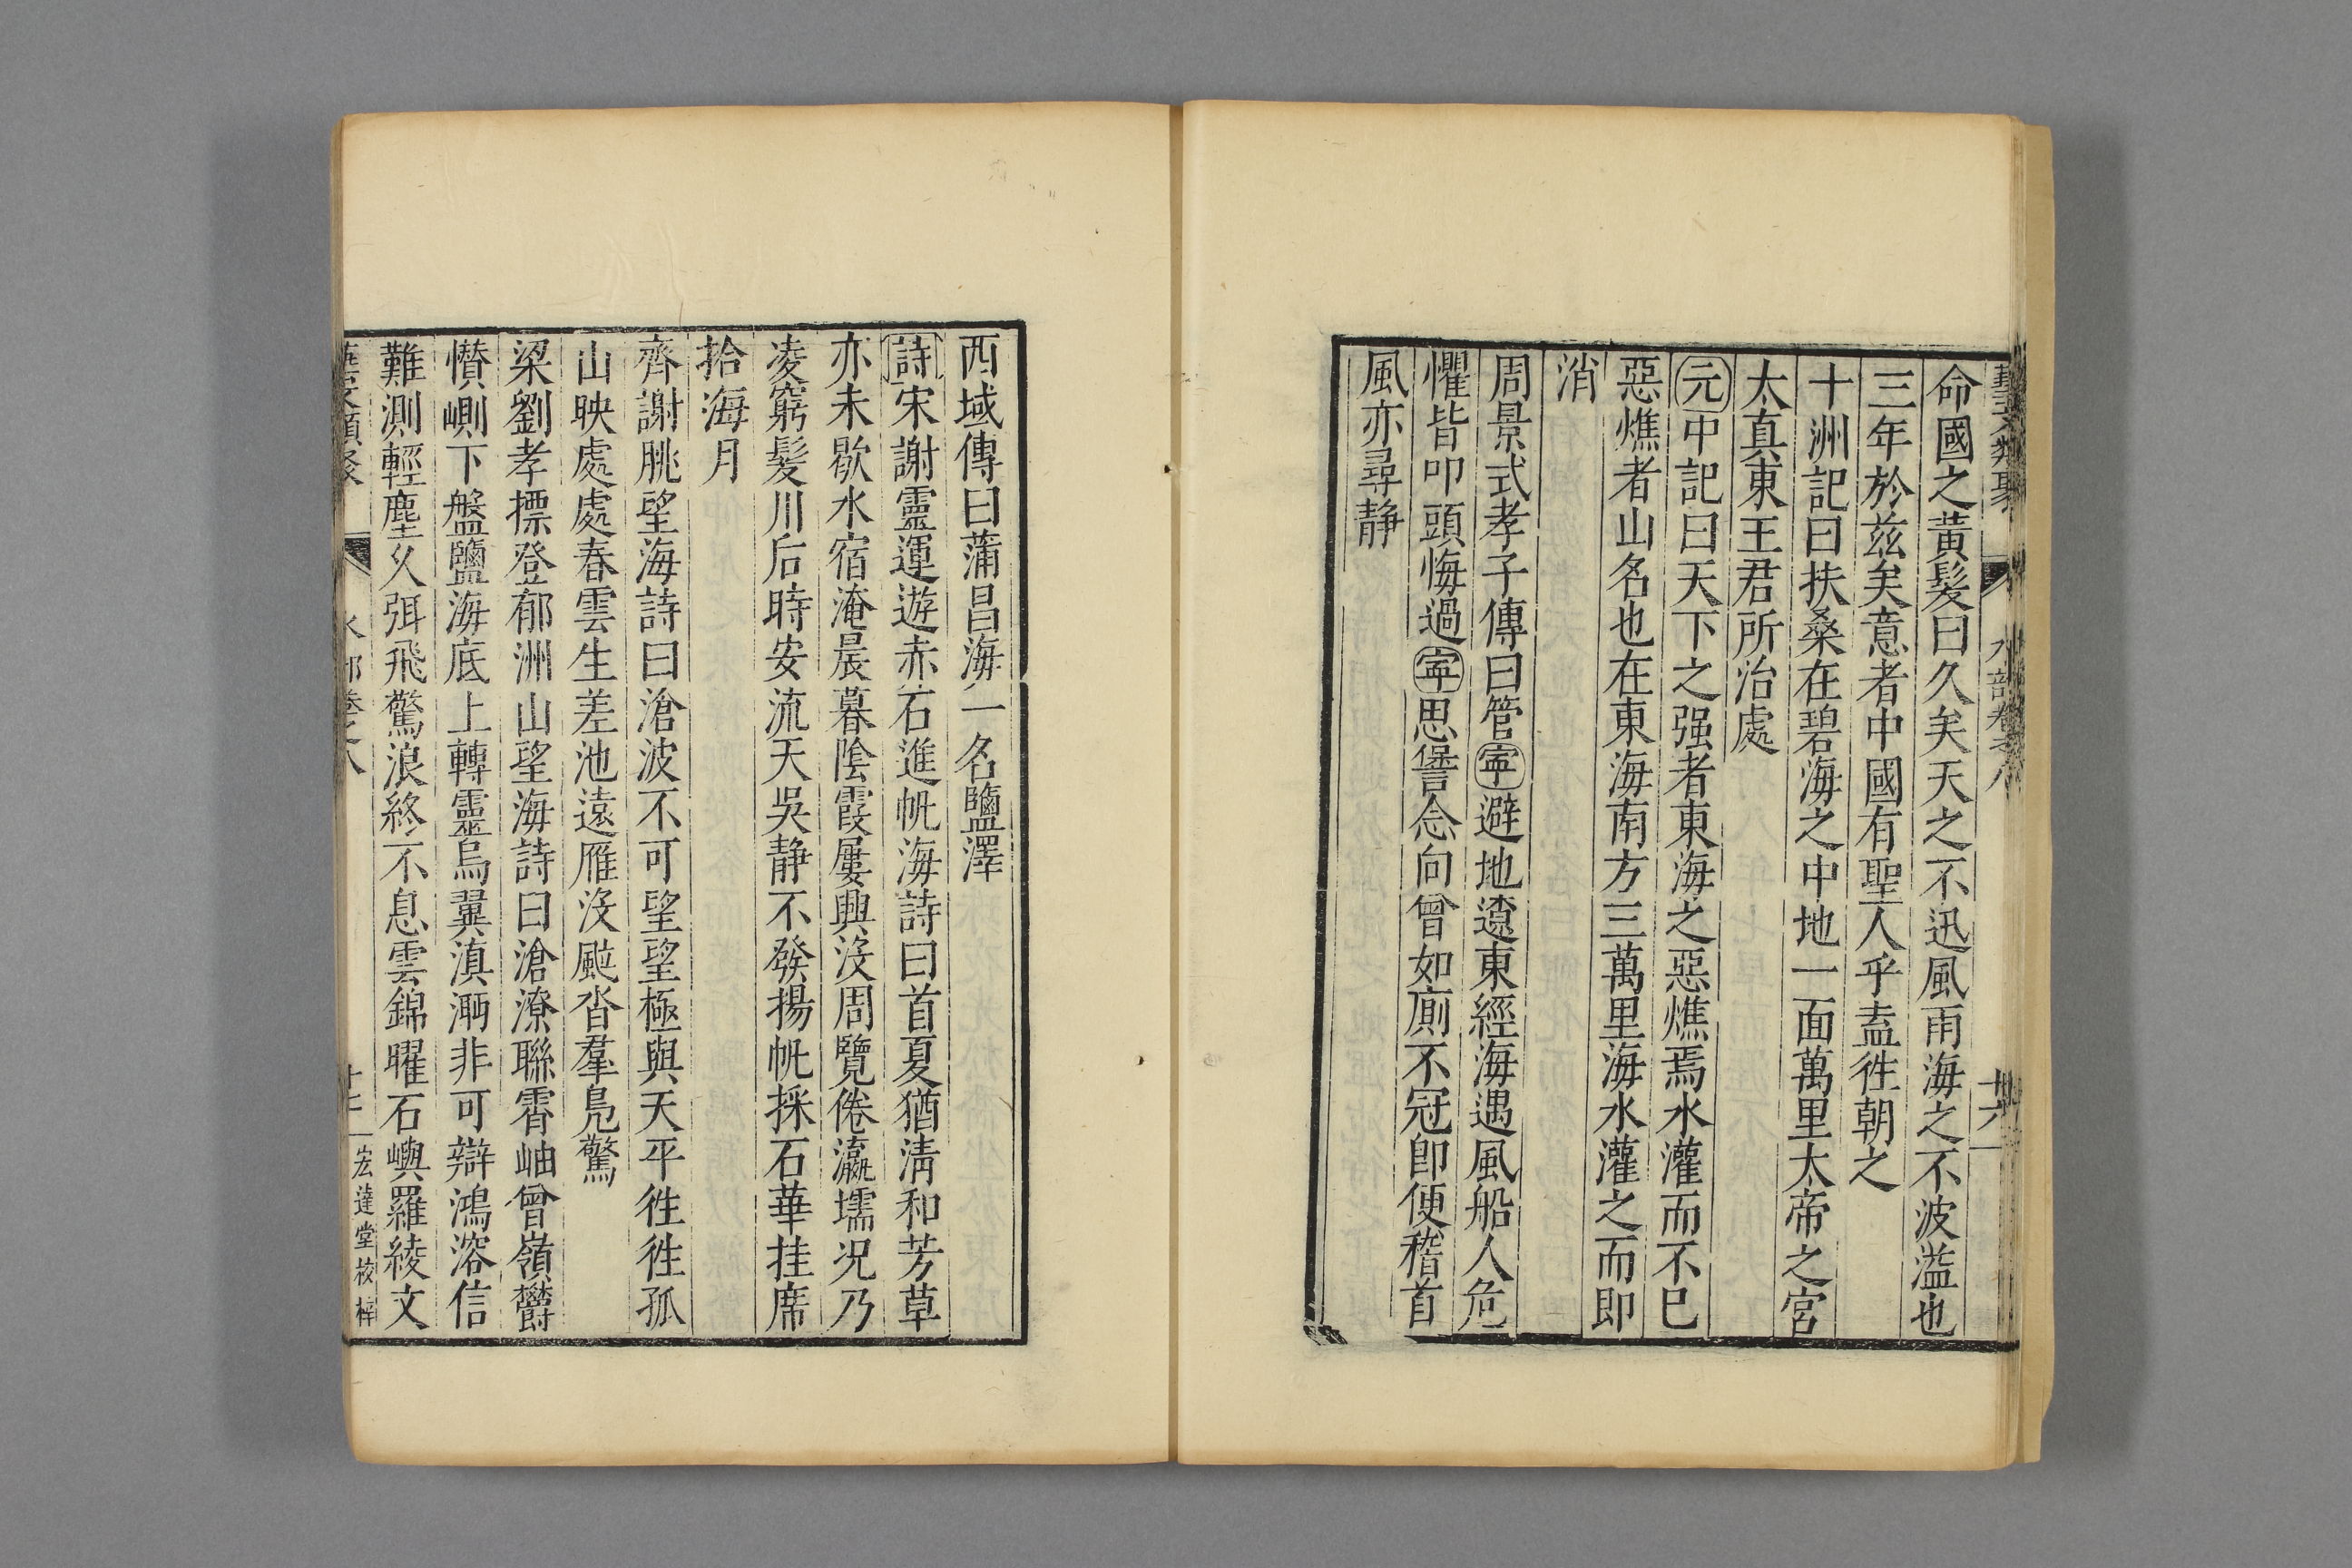 命國之黃髮曰久矣天之不迅風雨海之不波溢也
三年於茲矣意者中國有聖人乎盍徃朝之
十洲記曰扶桑在碧海之中地一面萬里太帝之宮
太真東王君所治處
元中記曰天下之强者東海之惡燋焉水灌而不已
惡燋者山名也在東海南方三萬里海水灌之而即
消
周景式孝子傳曰管寧避地遼東經海遇風船人危
懼皆叩頭悔過寧思諐念向曾如廁不冠即便稽首
風亦尋静
西域傳曰蒲昌海一名鹽澤
詩宋謝靈運遊赤石進帆海詩曰首夏猶淸和芳草
亦未歇水宿淹晨暮陰霞屢興沒周覽倦瀛壖况乃
凌窮髮川后時安流天吳静不發揚帆採石華挂席
拾海月
齊謝朓望海詩曰滄波不可望望極與天平徃徃孤
山映處處春雲生差池遠雁沒颭沓羣鳧驚
梁劉孝摽登郁洲山望海詩曰滄潦聯霄岫曾嶺欝
懫崱下盤鹽海底上轉靈烏翼滇沔非可辯鴻溶信
難測輕塵久弭飛驚浪終不息雲錦曜石嶼羅綾文
藝文類聚 水部卷之八 十七 宏達堂校梓